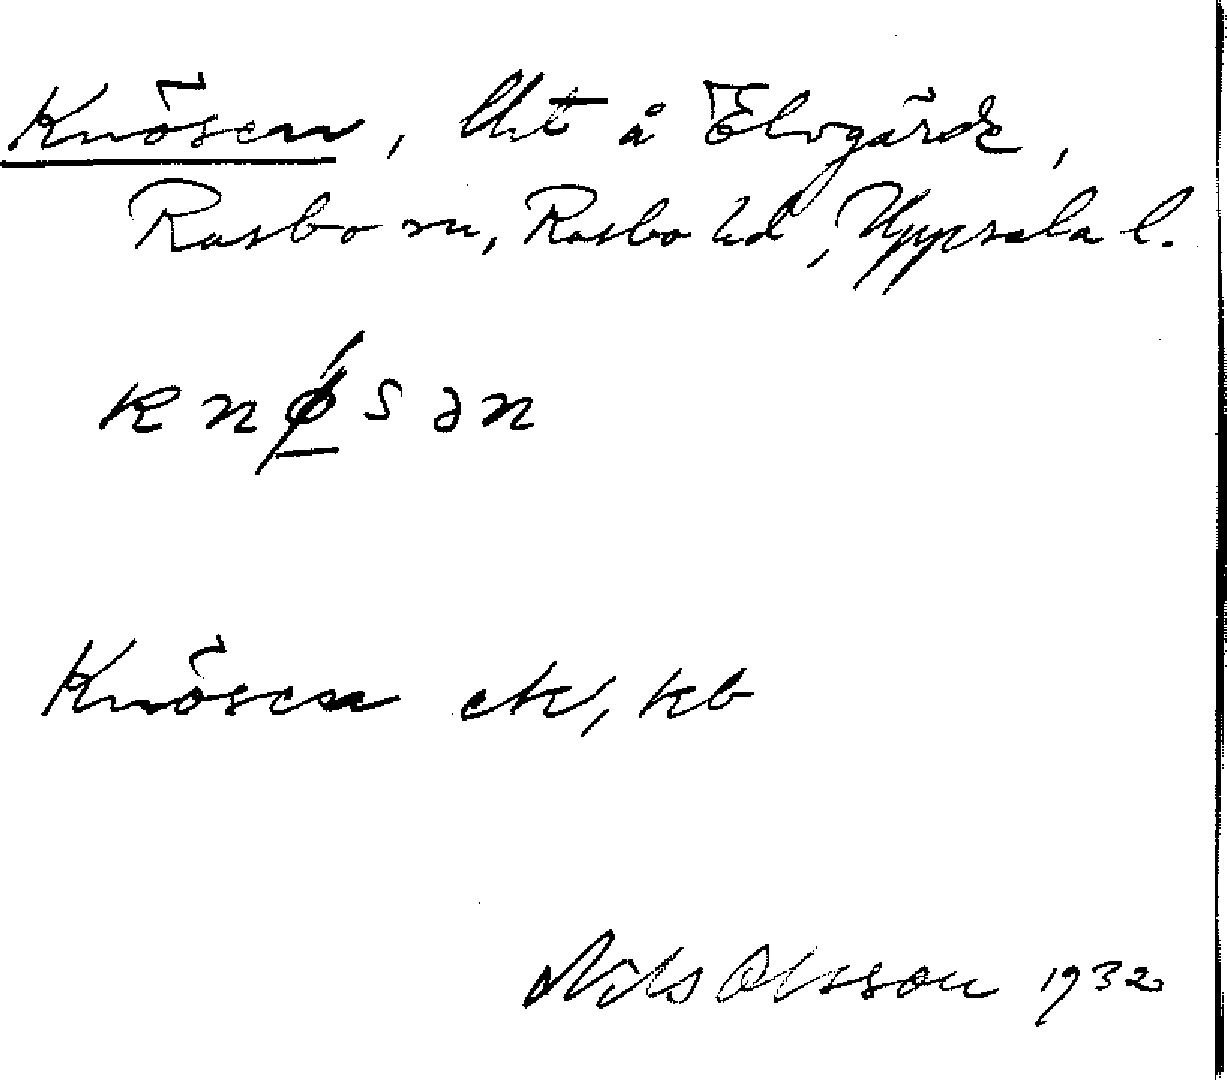 Knösen, lht å Elvgärde,
Rasbo sn, Rasbo hd, Uppsala l.
knǿ̲sən
Knösen ek, kb
Nils Olsson 1932